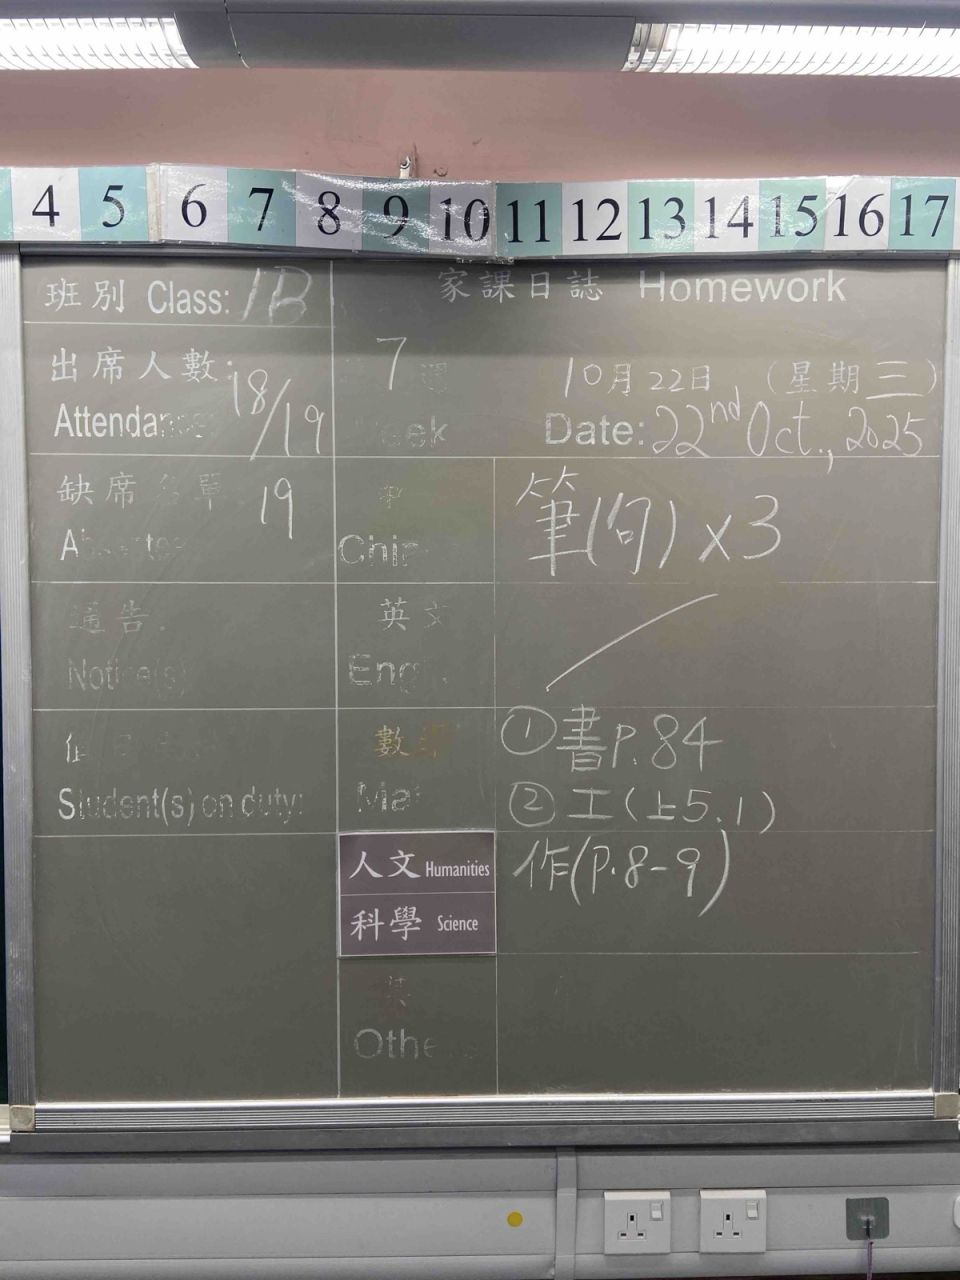 4 5 6 7 8 9 10 11 12 13 14 15 16 17
班別 Class: 1B
家課日誌 Homework
出席人數: 18/19
Attendance
7 週
Week
10月22日 (星期三)
Date: 22nd Oct., 2025
缺席名單 19
Absentee
中
Chin
筆(句) x3
通告.
Notice(s)
英文
Eng
Student(s) on duty:
數學
Mat
①書P.84
②工(上5.1)
人文 Humanities
科學 Science
作(P.8-9)
其
Othe